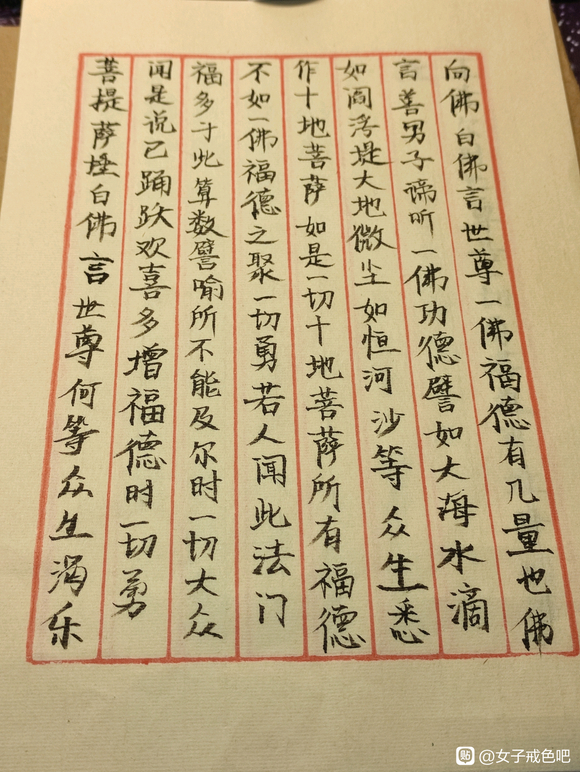 向佛白佛言世尊一佛福德有几量也佛
言善男子谛听一佛功德譬如大海水滴
如阎浮堤大地微尘如恒河沙等众生悉
作十地菩萨如是一切十地菩萨所有福德
不如一佛福德之聚一切勇若人闻此法门
福多于此算数譬喻所不能及尔时一切大众
闻是说已踊跃欢喜多增福德时一切勇
菩提萨埵白佛言世尊何等众生渴乐
贴 @女子戒色吧